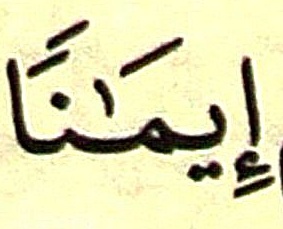 إِيمَٰنًا